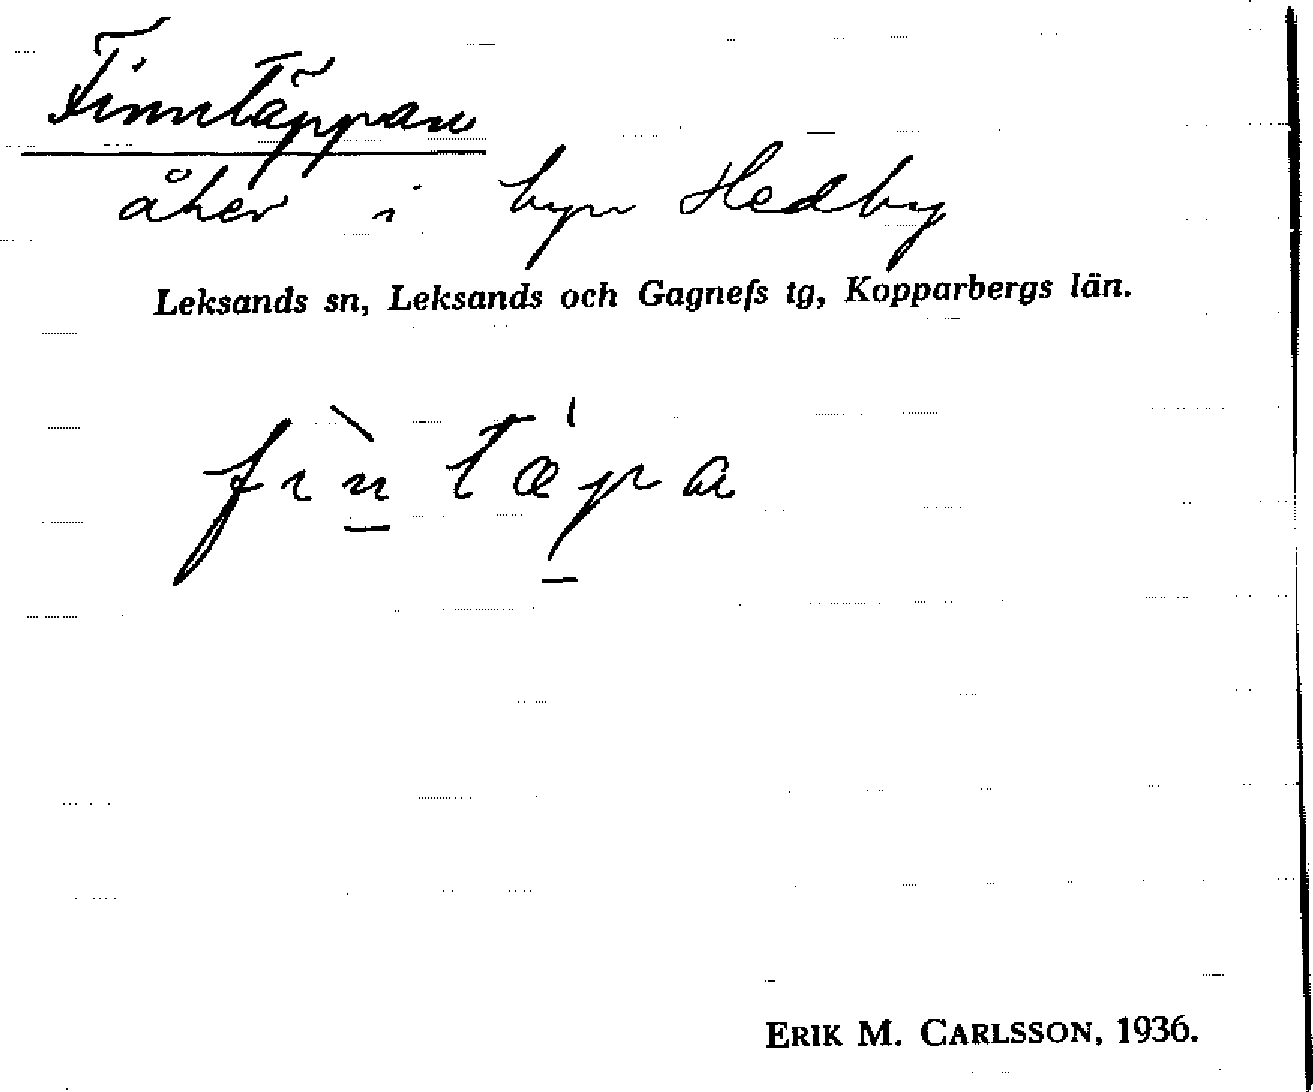 Finntäppan
åker i byn Hedby
Leksands sn, Leksands och Gagnefs tg, Kopparbergs län.
fìn̲ tæ̍p̲a
ERIK M. CARLSSON, 1936.